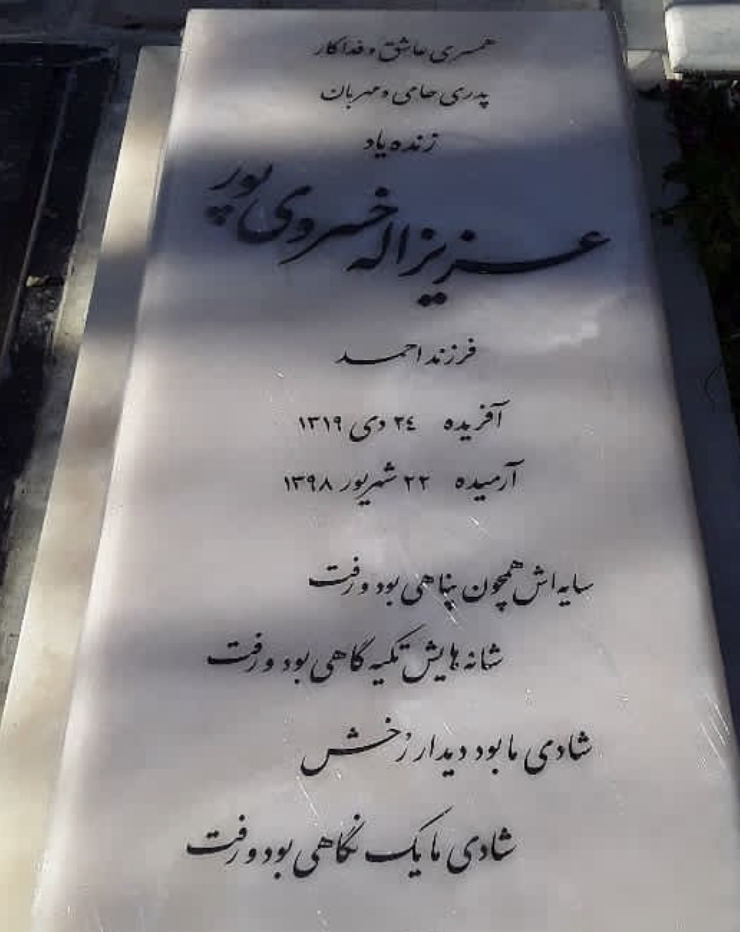 همسری عاشق و فداکار
پدری حامی و مهربان
زنده یاد
عزیزاله خسروی پور
فرزند احمد
آفریده ۲۴ دی ۱۳۱۹
آرمیده ۲۲ شهریور ۱۳۹۸
سایه اش همچون پناهی بود و رفت
شانه هایش تکیه گاهی بود و رفت
شادی ما بود دیدار رُخش
شادی ما یک نگاهی بود و رفت